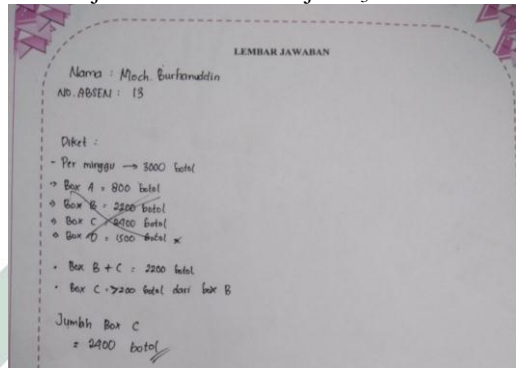 LEMBAR JAWABAN
Nama : Moch. Burhanuddin
NO. ABSEN : 13
Diket :
- Per minggu → 3000 botol
→ Box A = 800 botol
→ Box B = 2200 botol
→ Box C = 2400 botol
→ Box D = 1500 botol ×
• Box B + C = 2200 botol
• Box C = >200 botol dari box B
Jumlah Box C
= 2400 botol